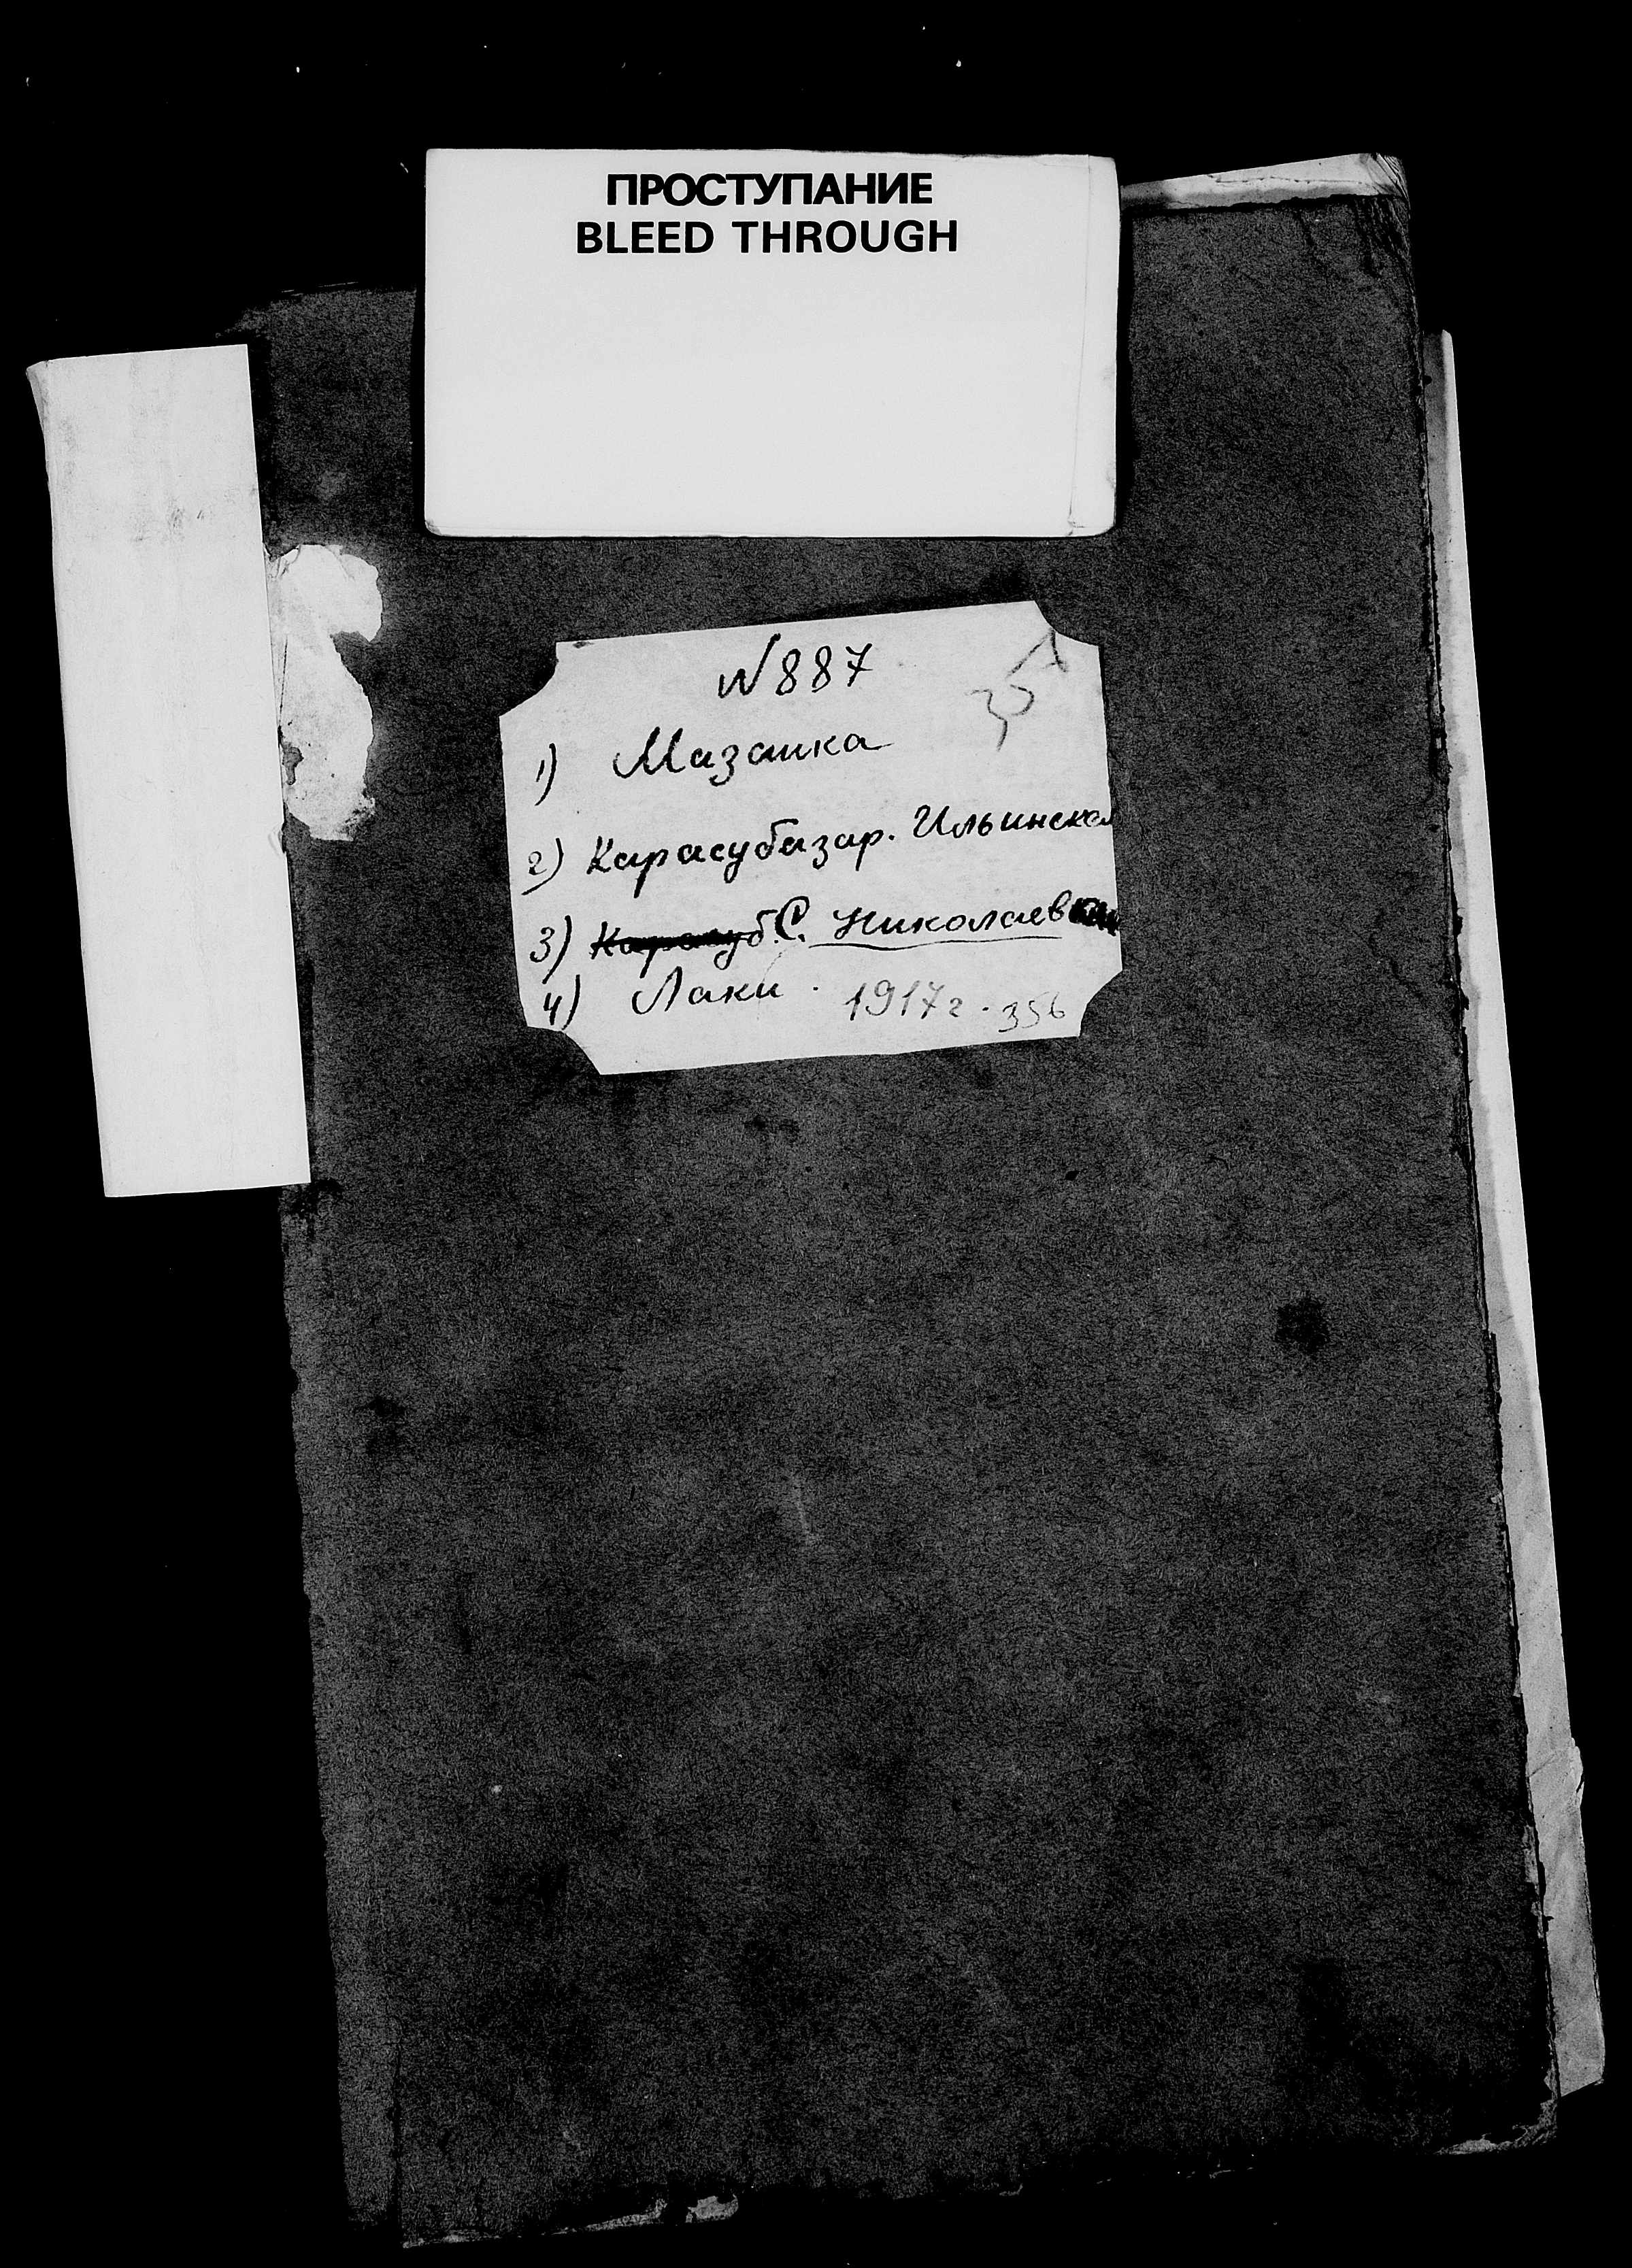 ПРОСТУПАНИЕ
BLEED THROUGH
N887
357
1) Мазанка
2) Карасубазар. Ильинская
3) Карасуб. С. Николаевка
4) Лаки. 1917г. 356